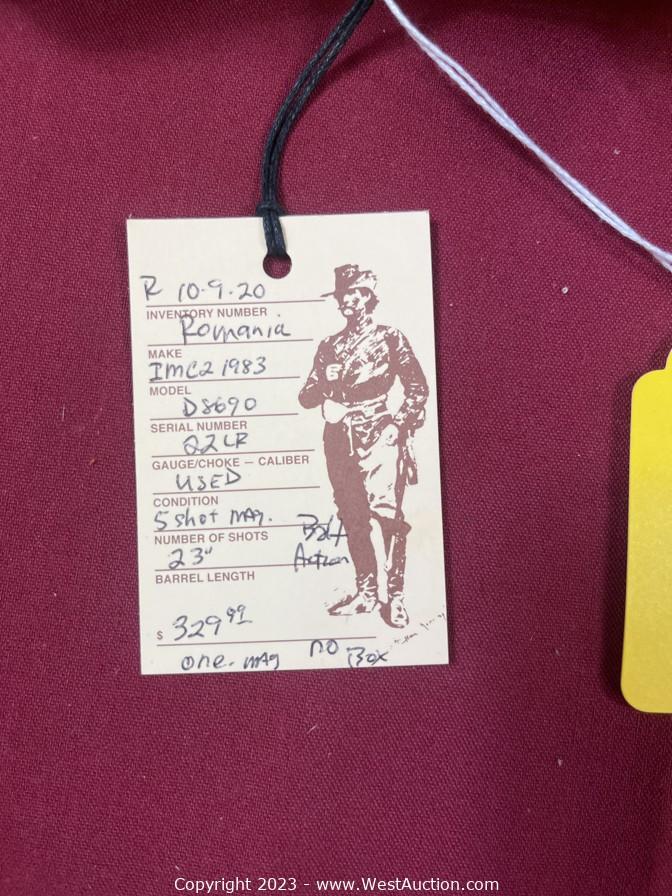 R 10-9-20
INVENTORY NUMBER
Romania
MAKE
IMC2 1983
MODEL
DS690
SERIAL NUMBER
22LR
GAUGE/CHOKE — CALIBER
USED
CONDITION
5 shot MAg.
NUMBER OF SHOTS
Bolt
Action
23"
BARREL LENGTH
$ 329 99
one. mAg no Box
Copyright 2023 - www.WestAuction.com